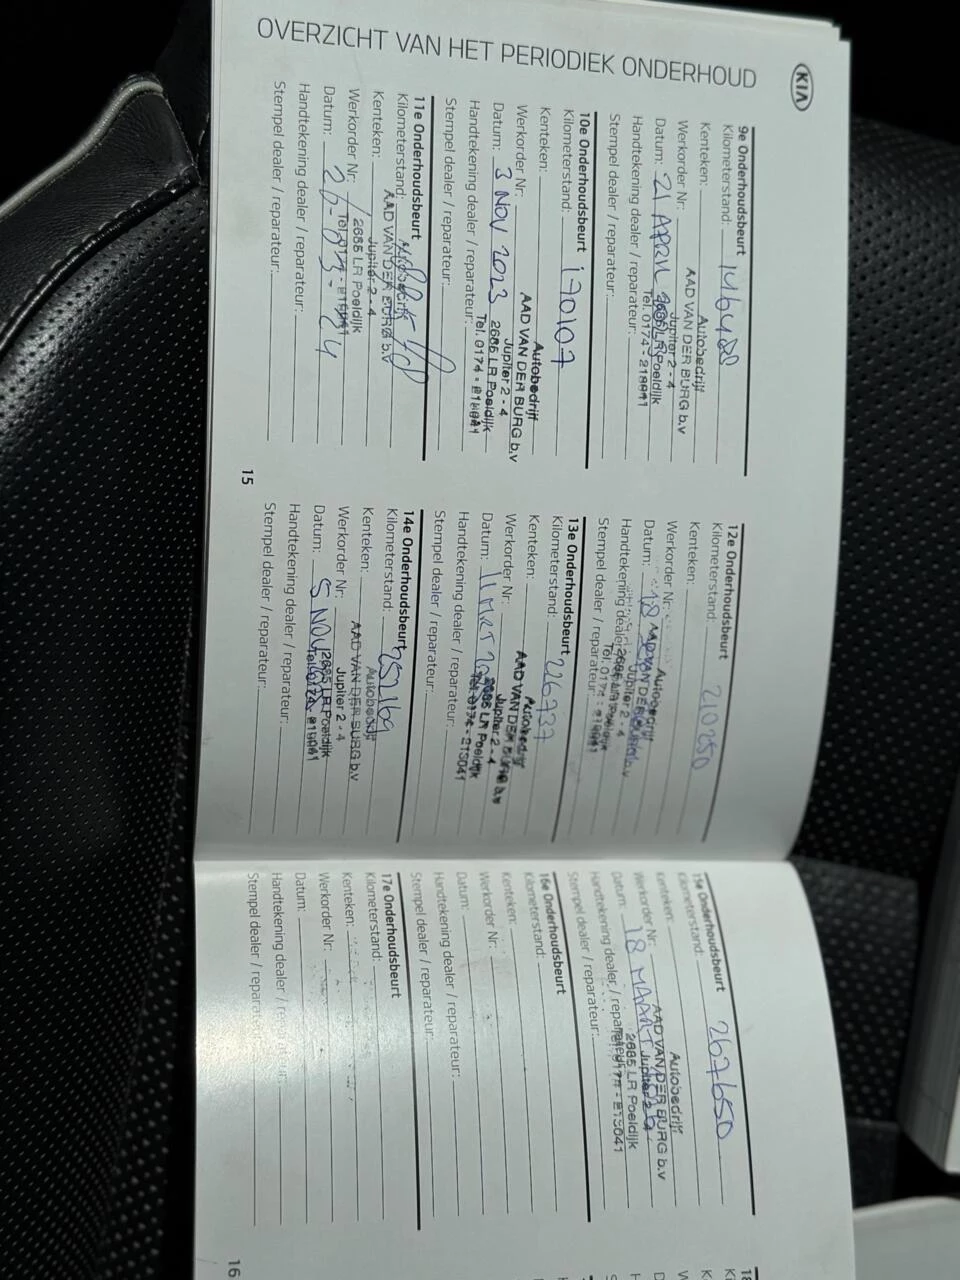 KIA
OVERZICHT VAN HET PERIODIEK ONDERHOUD
9e Onderhoudsbeurt
Kilometerstand: 146428
Kenteken:
Autobedrijf
Werkorder Nr: AAD VAN DER BURG b.v
Jupiter 2 - 4
Datum: 21 APRIL 2685 LR Poeldijk
Tel. 0174 -
Handtekening dealer / reparateur:
Stempel dealer / reparateur:
10e Onderhoudsbeurt
Kilometerstand: 170107
Kenteken:
Autobedrijf
Werkorder Nr: AAD VAN DER BURG b.v
Jupiter 2 - 4
Datum: 3 NOV 2023 2685 LR Poeldijk
Tel. 0174 -
Handtekening dealer / reparateur:
Stempel dealer / reparateur:
11e Onderhoudsbeurt
Kilometerstand:
AAD VAN DER BURG b.v
Kenteken:
Jupiter 2 - 4
2685 LR Poeldijk
Werkorder Nr:
Tel. 0174 -
Datum:
Handtekening dealer / reparateur:
Stempel dealer / reparateur:
15
12e Onderhoudsbeurt
Kilometerstand: 210250
Kenteken:
Autobedrijf
Werkorder Nr:
Datum: 18
Jupiter 2 - 4
Handtekening dealer
Tel. 0174 -
Stempel dealer / reparateur:
13e Onderhoudsbeurt
Kilometerstand: 226937
Kenteken:
Autobedrijf
AAD VAN DER BURG b.v
Werkorder Nr:
Jupiter 2 - 4
Datum: 11 MRT 2685 LR Poeldijk
Tel. 0174 - 215041
Handtekening dealer / reparateur:
Stempel dealer / reparateur:
14e Onderhoudsbeurt
Kilometerstand: 252169
Autobedrijf
Kenteken:
AAD VAN DER BURG b.v
Werkorder Nr:
Jupiter 2 - 4
2685 LR Poeldijk
Datum: 5 NOV
Handtekening dealer / reparateur:
Stempel dealer / reparateur:
15e Onderhoudsbeurt
Kilometerstand: 267650
Kenteken:
Autobedrijf
Werkorder Nr: AAD VAN DER BURG b.v
Jupiter 2 - 4
Datum: 18 MAART
2685 LR Poeldijk
Handtekening dealer / reparateur:
Stempel dealer / reparateur:
16e Onderhoudsbeurt
Kilometerstand:
Kenteken:
Werkorder Nr:
Datum:
Handtekening dealer / reparateur:
Stempel dealer / reparateur:
17e Onderhoudsbeurt
Kilometerstand:
Kenteken:
Werkorder Nr:
Datum:
Handtekening dealer / reparateur:
Stempel dealer / reparateur:
16